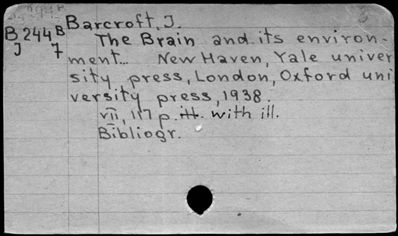 B 244 B Barcroft, J.
J 7 The Brain and its environ-
ment... New Haven, Yale univer
sity press, London, Oxford uni
versity press, 1938.
VII, 117 p. ill. with ill.
Bibliogr.